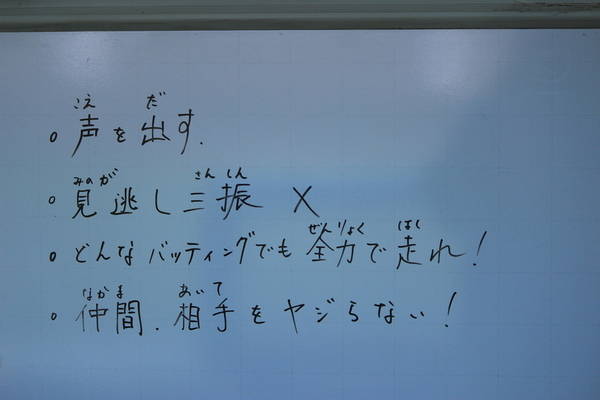 こえ だ
。声を出す.
みのが さんしん
。見逃し三振 X
ぜんりょく はし
。どんなバッティングでも全力で走れ!
なかま あいて
。仲間.相手をヤジらない!